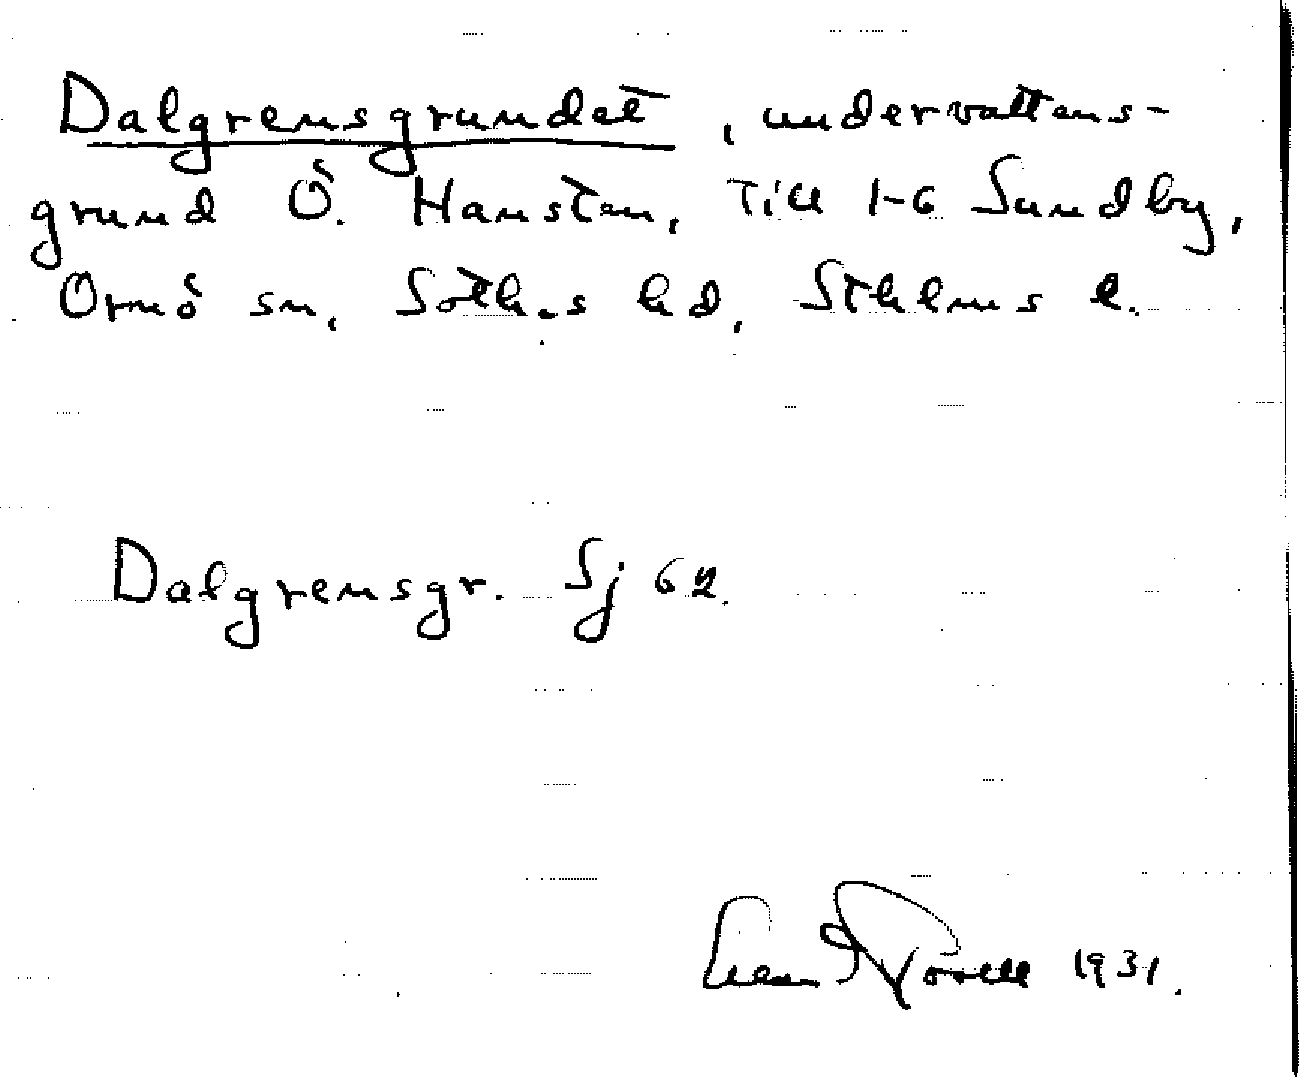 Dalgrensgrundet, undervattens-
grund Ö. Hansten, till 1-6 Sundby,
Ornö sn, Sothms hd, Sthlms l.
Dalgrensgr. Sj 62.
1931.